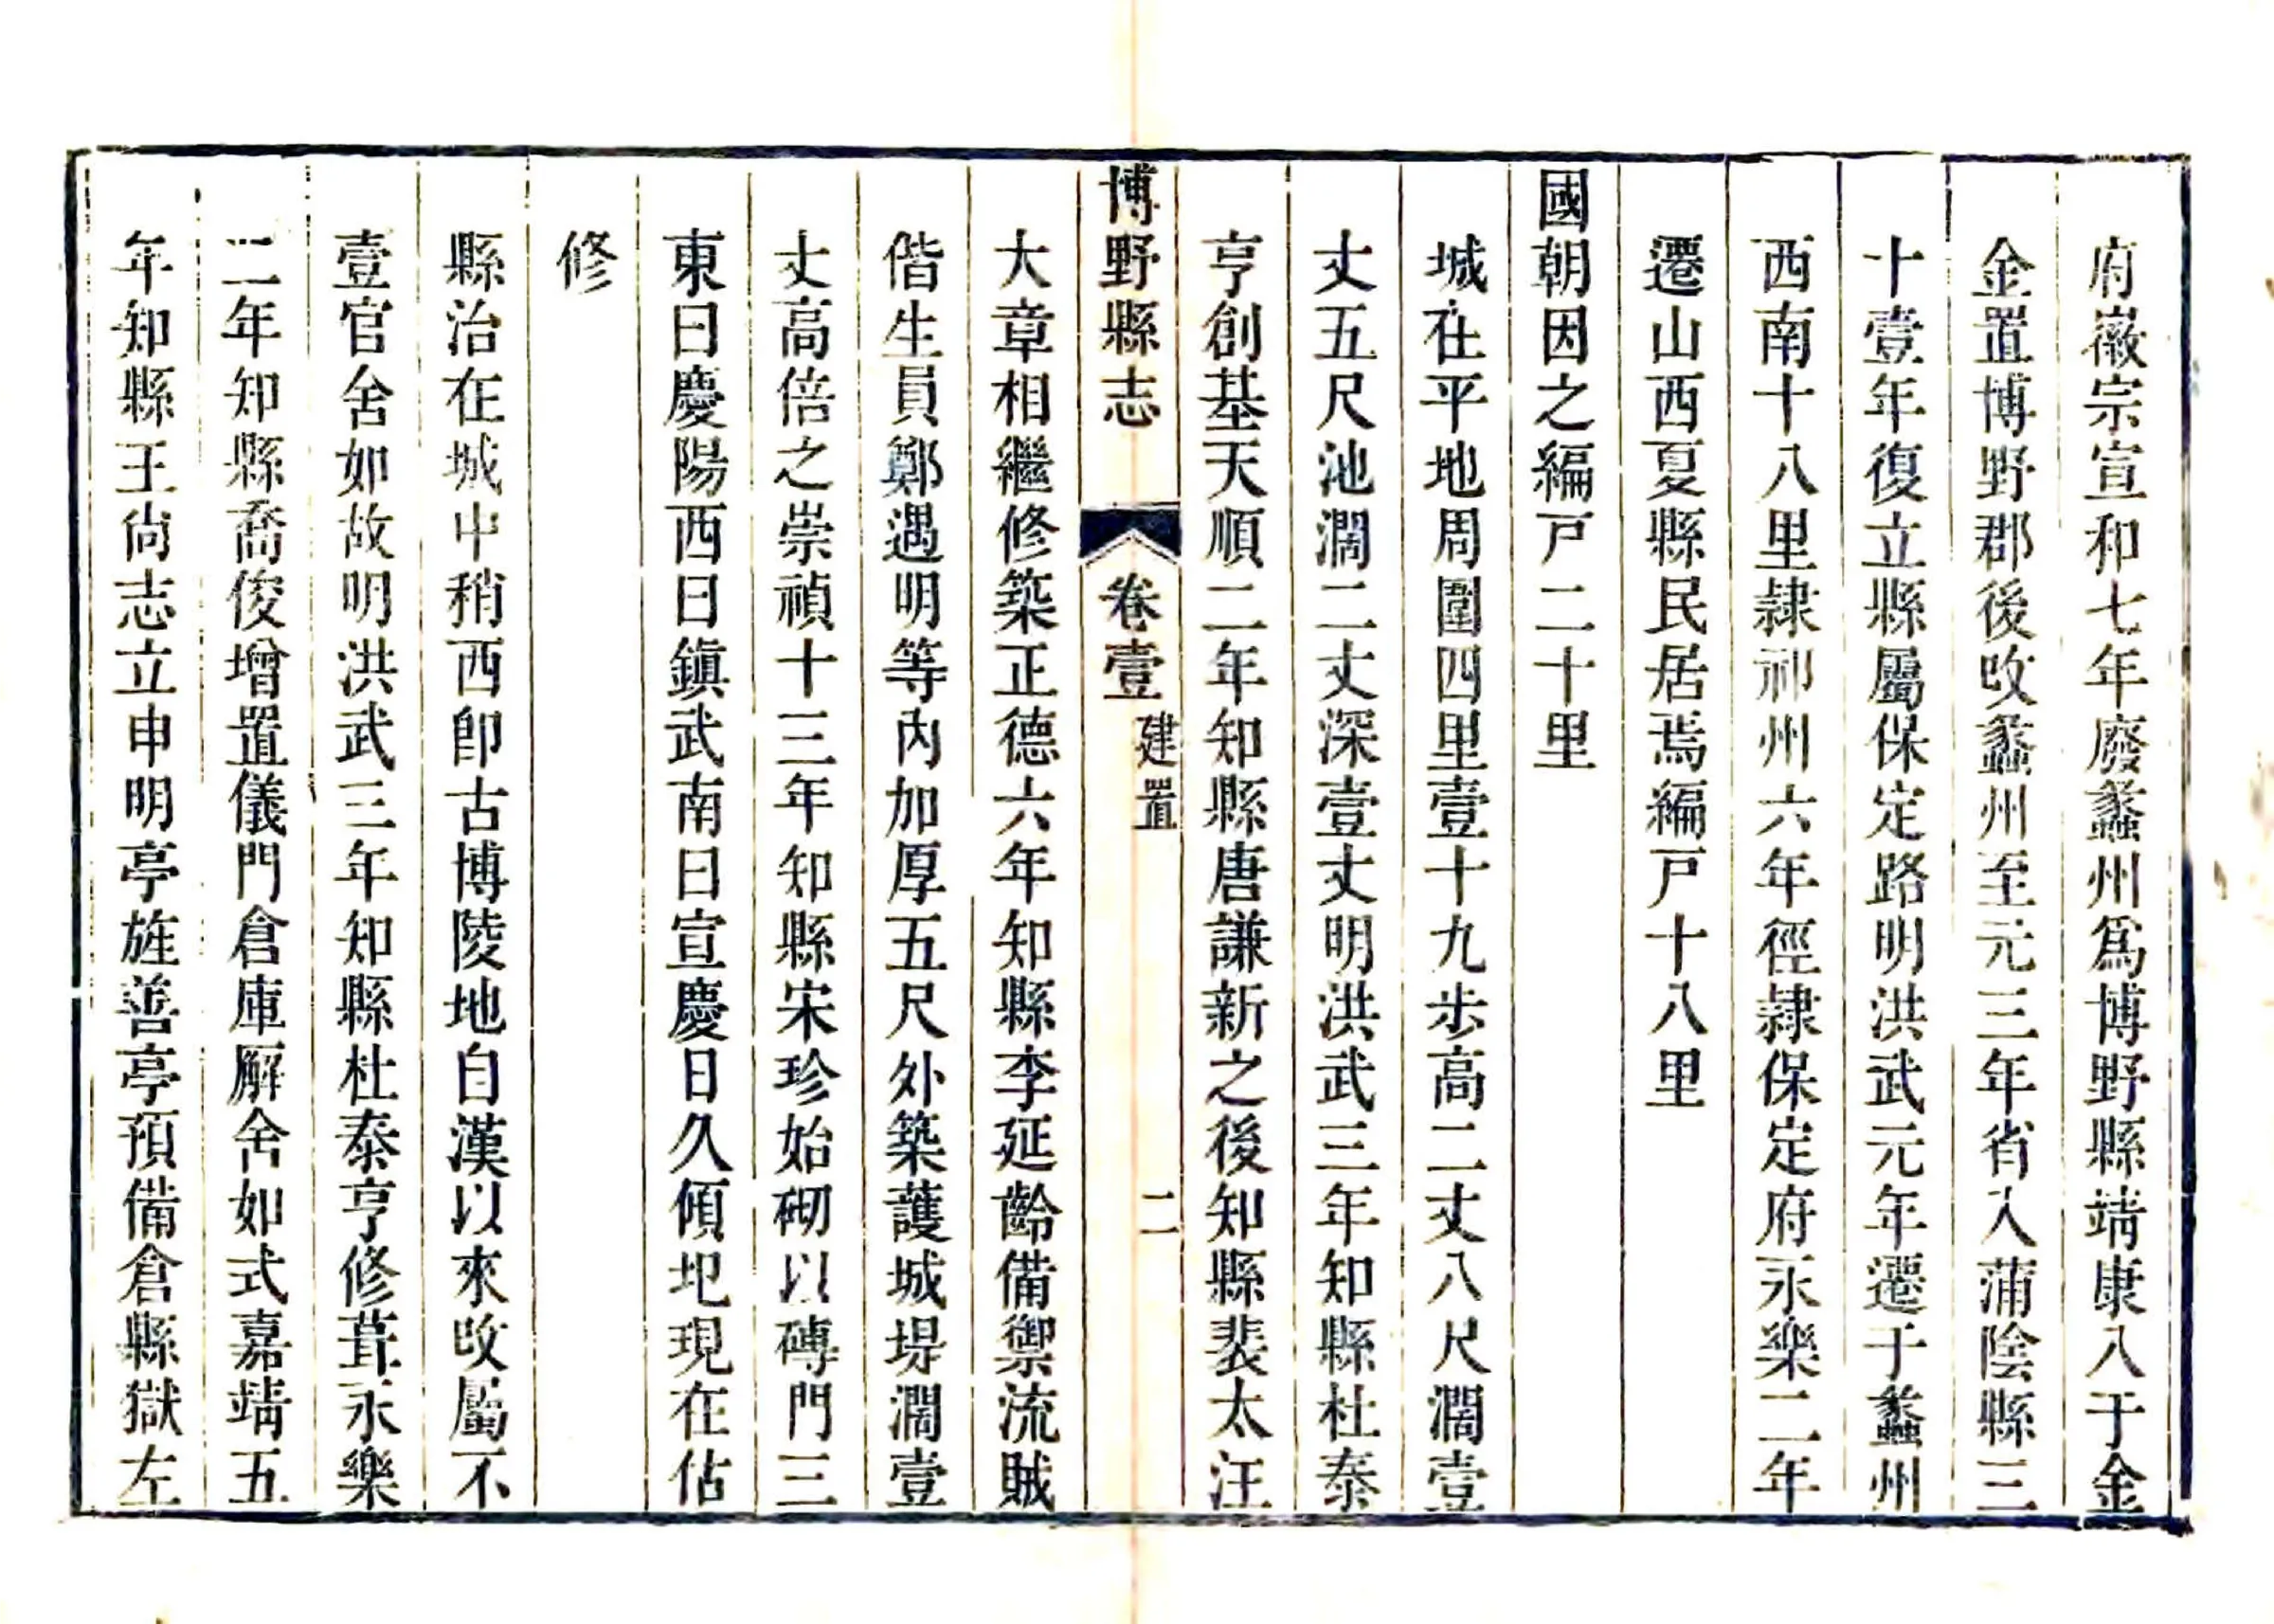 府徽宗宣和七年廢蠡州爲博野縣靖康入于金
金置博野郡後改蠡州至元三年省入蒲陰縣三
十壹年復立縣屬保定路明洪武元年遷于蠡州
西南十八里隷祁州六年徑隷保定府永樂二年
遷山西夏縣民居焉編戸十八里
國朝因之編戸二十里
城在平地周圍四里壹十九步高二丈八尺濶壹
丈五尺池濶二丈深壹丈明洪武三年知縣杜泰
亨創基天順二年知縣唐謙新之後知縣裴太汪
博野縣志
卷壹
建置
二
大章相繼修築正德六年知縣李延齡備禦流賊
偕生員鄭遇明等內加厚五尺外築護城堤濶壹
丈高倍之崇禎十三年知縣宋珍始砌以磚門三
東曰慶陽西曰鎭武南曰宣慶日久傾圯現在估
修
縣治在城中稍西卽古博陵地自漢以來改屬不
壹官舍如故明洪武三年知縣杜泰亨修葺永樂
二年知縣喬俊增置儀門倉庫廨舍如式嘉靖五
年知縣王尙志立申明亭旌善亭預備倉縣獄左